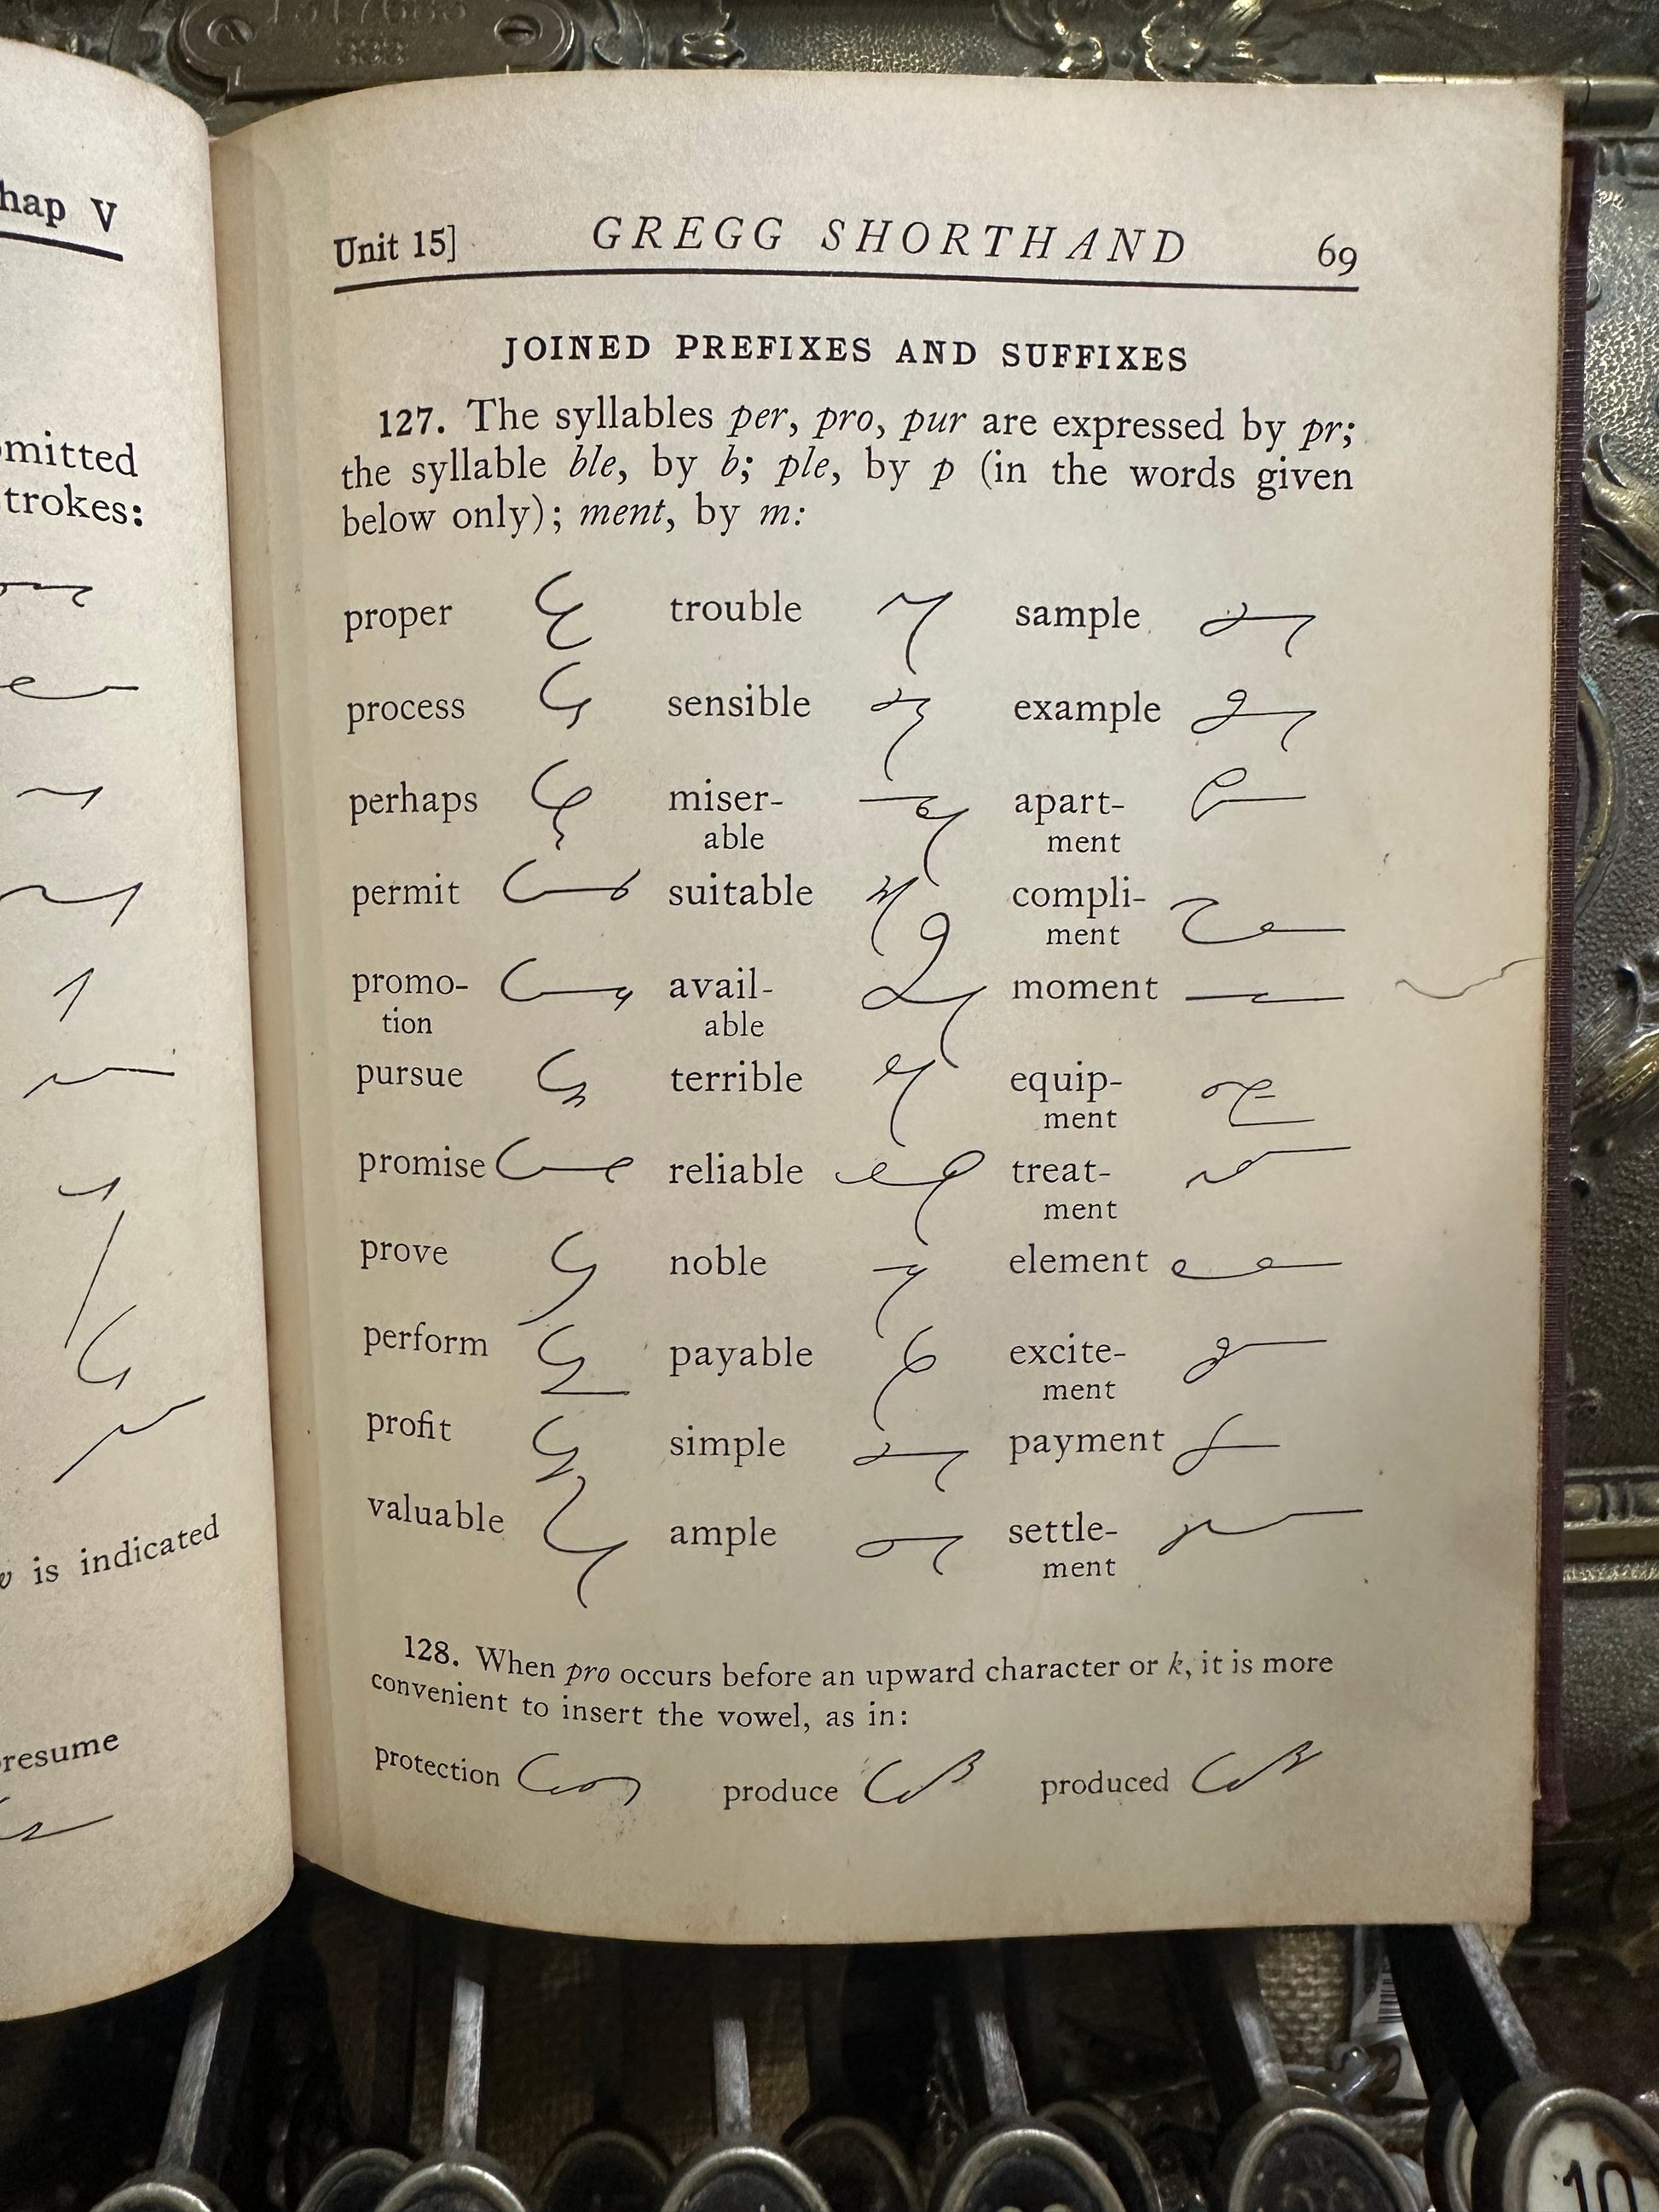 hap V
omitted
trokes:
v is indicated
presume
Unit 15] GREGG SHORTHAND 69
JOINED PREFIXES AND SUFFIXES
127. The syllables per, pro, pur are expressed by pr;
the syllable ble, by b; ple, by p (in the words given
below only); ment, by m:
proper trouble sample
process sensible example
perhaps miser- apart-
able ment
permit suitable compli-
ment
promo- avail- moment
tion able
pursue terrible equip-
ment
promise reliable treat-
ment
prove noble element
perform payable excite-
ment
profit simple payment
valuable ample settle-
ment
128. When pro occurs before an upward character or k, it is more
convenient to insert the vowel, as in:
protection produce produced
10